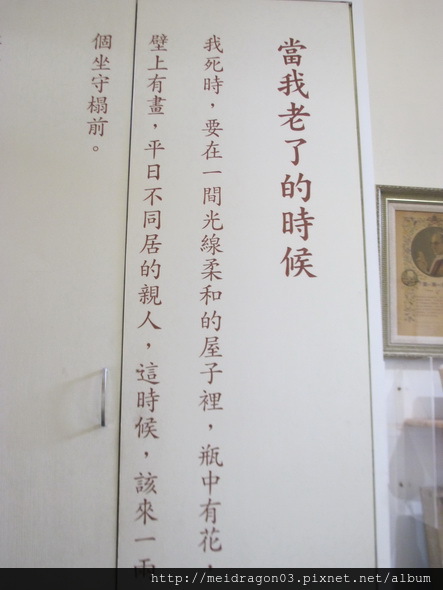 當我老了的時候
我死時，要在一間光線柔和的屋子裡，瓶中有花，
壁上有畫，平日不同居的親人，這時候，該來一兩
個坐守榻前。
http://meidragon03.pixnet.net/album